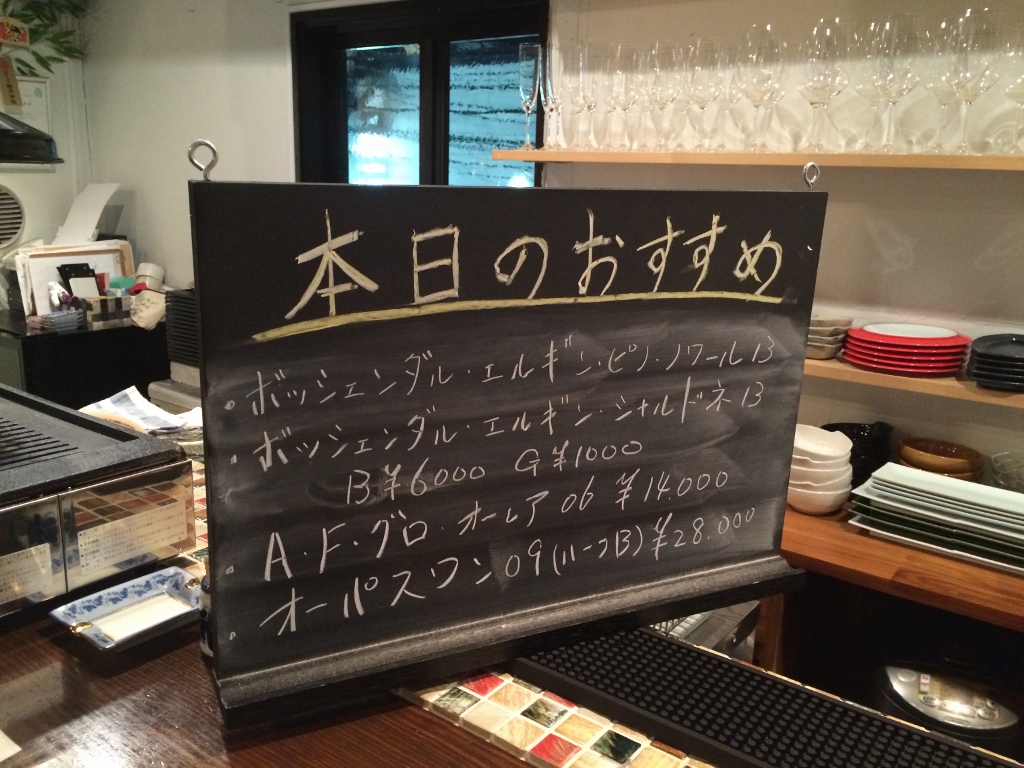 本日のおすすめ
・ボッシェンダル・エルギン・ピノ・ノワール13
・ボッシェンダル・エルギン・シャルドネ13
B¥6000 G¥1000
・A.F.グロ・オーレア06 ¥14.000
・オーパスワン09(ハーフB)¥28.000